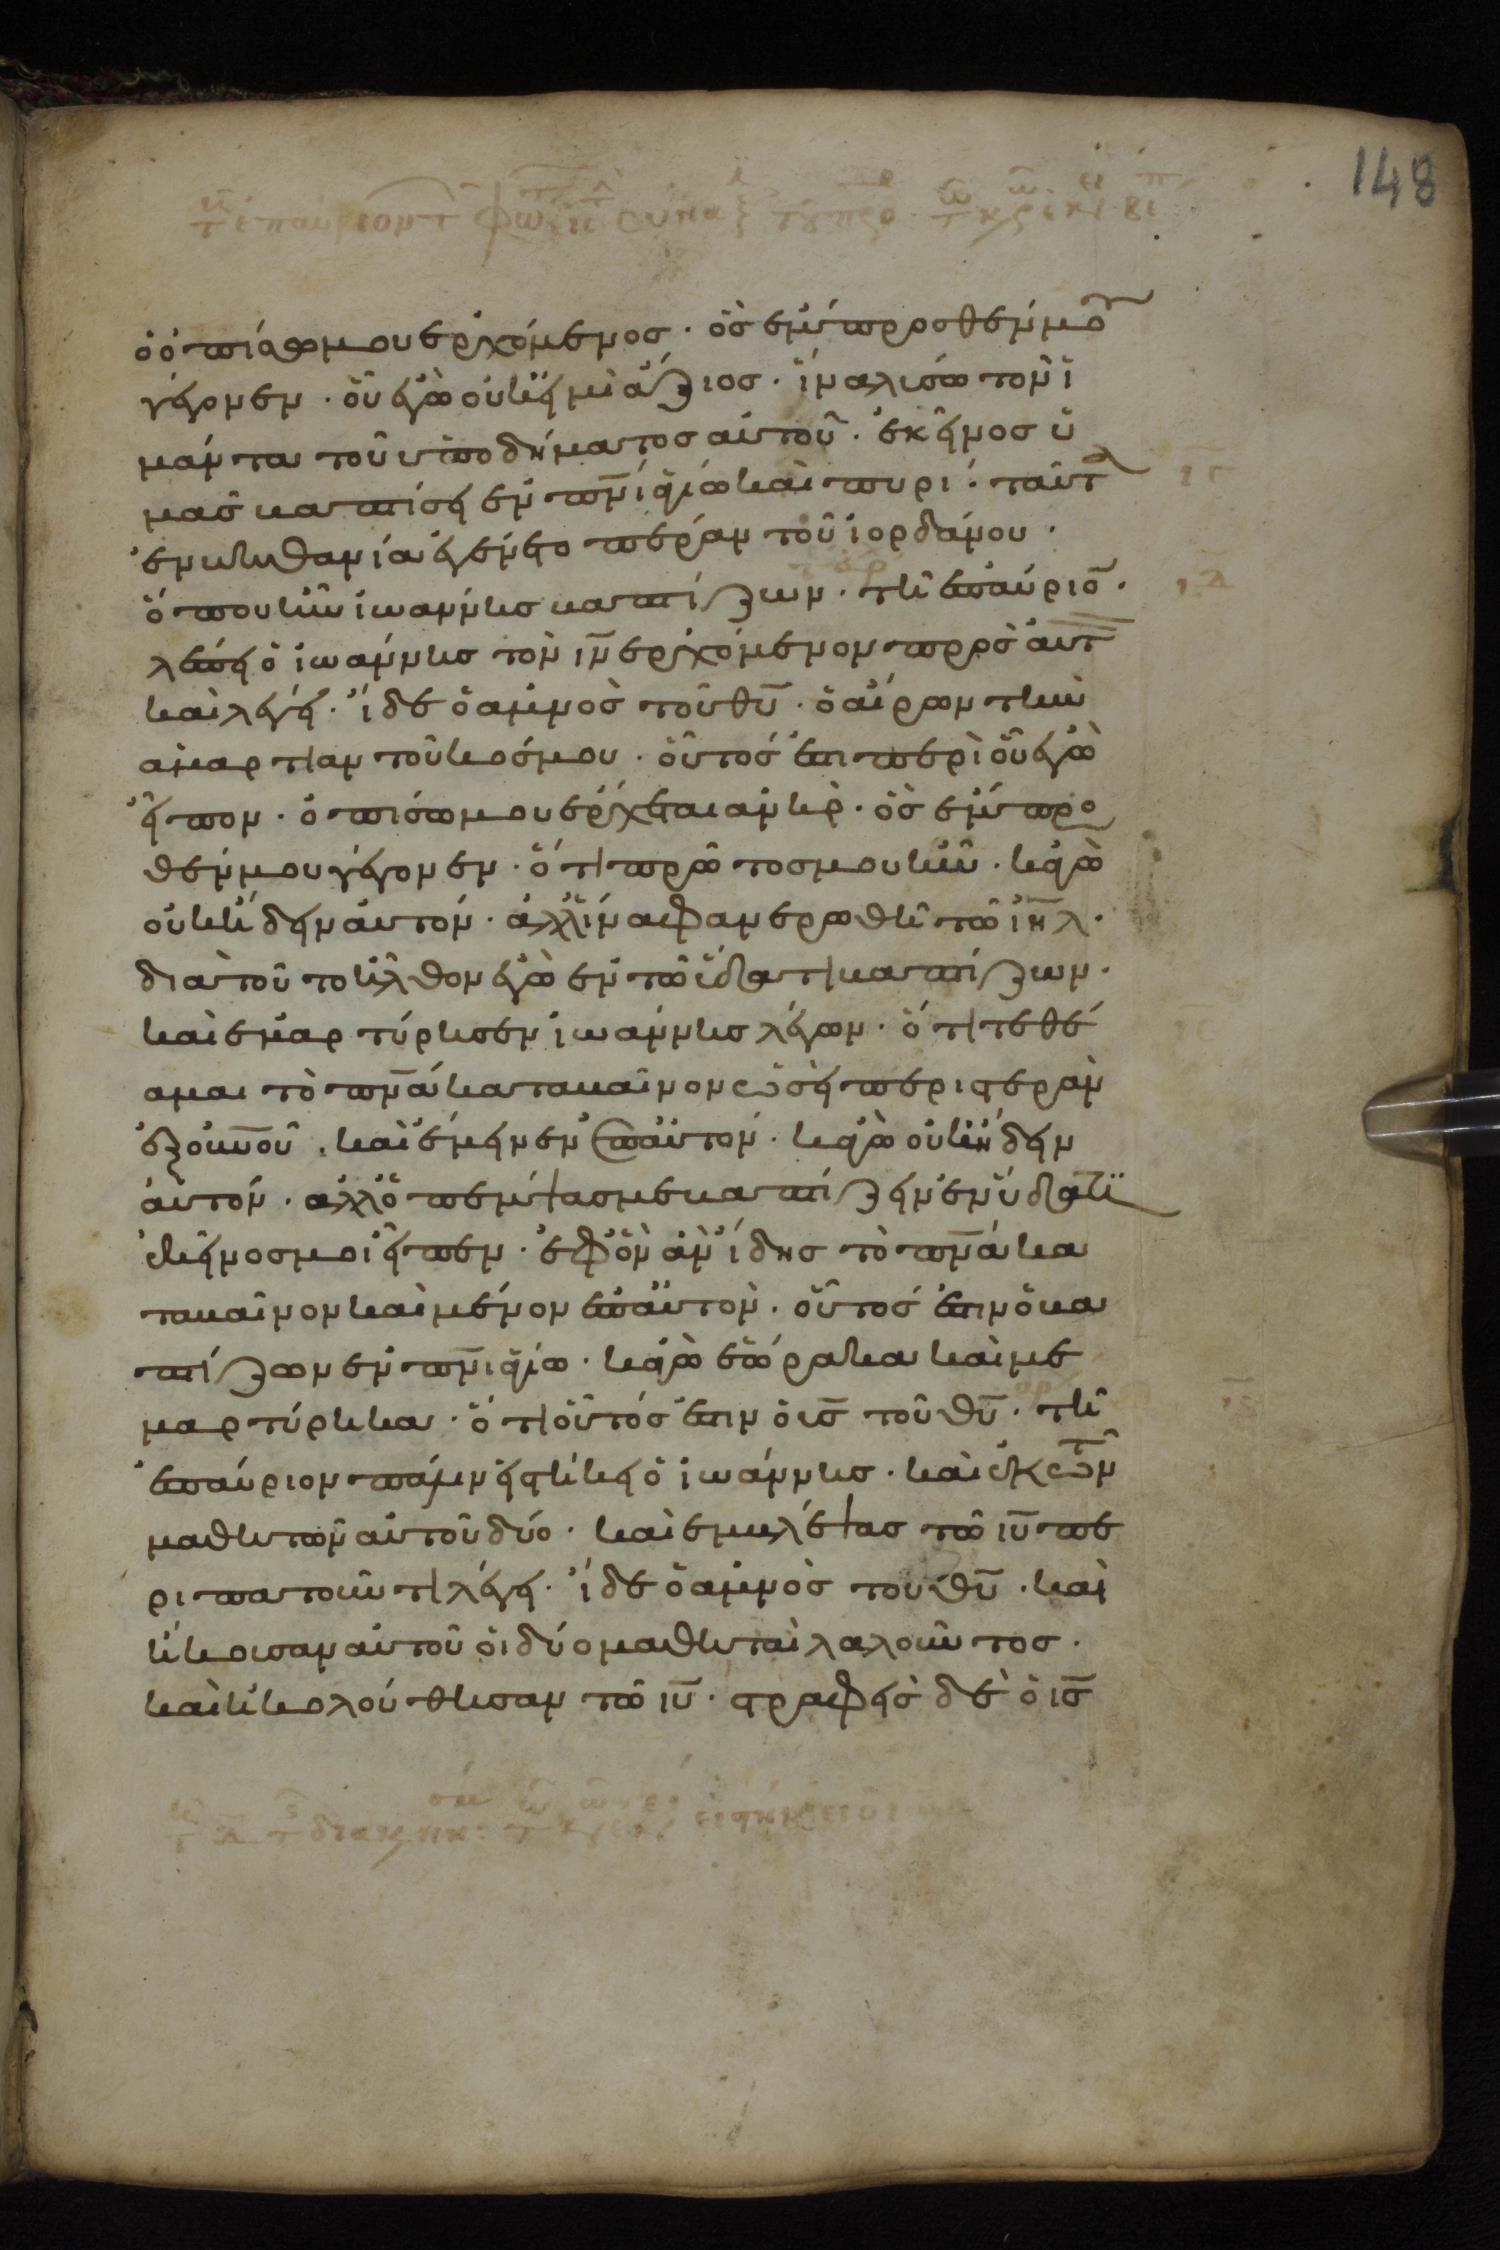 148
ὁ ὀπίσω μου ερχόμενος · ὃς ἔμπροσθέν μου
γέγονεν · οὗ ἐγὼ οὐκ εἰμὶ ἄξιος · ἵνα λύσω τὸν ἱ
μάντα τοῦ ὑποδήματος αὐτοῦ · ἐκεῖνος ὑ
μᾶς βαπτίσει ἐν πνι ἁγίω καὶ πυρί · ταῦτα
ἐν βηθανία ἐγένετο πέραν τοῦ ἰορδάνου ·
ὅπου ἦν ἰωάννης βαπτίζων · τῆ ἐπαύριον ·
βλέπει ὁ ἰωάννης τὸν ιν ερχόμενον πρὸς αὐτ
καὶ λέγει · ἴδε ὁ ἀμνὸς τοῦ θυ · ὁ αἴρων τὴν
ἁμαρτίαν τοῦ κόσμου · οὗτός ἐστι περὶ οὗ ἐγὼ
εἶπον · ὀπίσω μου ἔρχεται ἀνὴρ · ὃς ἔμπρο
θέν μου γέγονεν · ὅτι πρῶτος μου ἦν · κἀγὼ
οὐκ ἤδειν αὐτόν · ἀλλ ἵνα φανερωθῆ τῶ ιηλ ·
διὰ τοῦτο ἦλθον ἐγὼ ἐν τῶ ὕδατι βαπτίζων ·
καὶ ἐμαρτύρησεν ἰωάννης λέγων · ὅτι τεθέ
αμαι τὸ πνα καταβαῖνον ὡσεὶ περιστερὰν
ἐξ οὐνοῦ · καὶ ἔμεινεν ἐπ αὐτόν · κἀγὼ οὐκ ἤδειν
αὐτόν · ἀλλ ὁ πέμψας με βαπτίζειν ἐν ὕδατι
ἐκεῖνος μοι εἶπεν · ἐφ ὃν ἂν ἴδης τὸ πνα κα
ταβαῖνον καὶ μένον ἐπ αὐτὸν · οὗτός ἐστιν ὁ βα
πτίζων ἐν πνι ἁγίω · κἀγὼ ἑώρακα καὶ με
μαρτύρηκα · ὅτι οὗτός ἐστιν ὁ υς τοῦ θυ · τῆ
ἐπαύριον πάλιν εἱστήκει ὁ ἰωάννης · καὶ ἐκ τῶν
μαθητῶν αὐτοῦ δύο · καὶ ἐμβλέψας τῶ ιυ πε
ριπατοῦντι λέγει · ἴδε ὁ ἀμνὸς του θυ · καὶ
ἤκουσαν αὐτοῦ οἱ δύο μαθηταὶ λαλοῦντος ·
καὶ ἠκολούθησαν τῶ ιυ · στραφεὶς δὲ ὁ ις